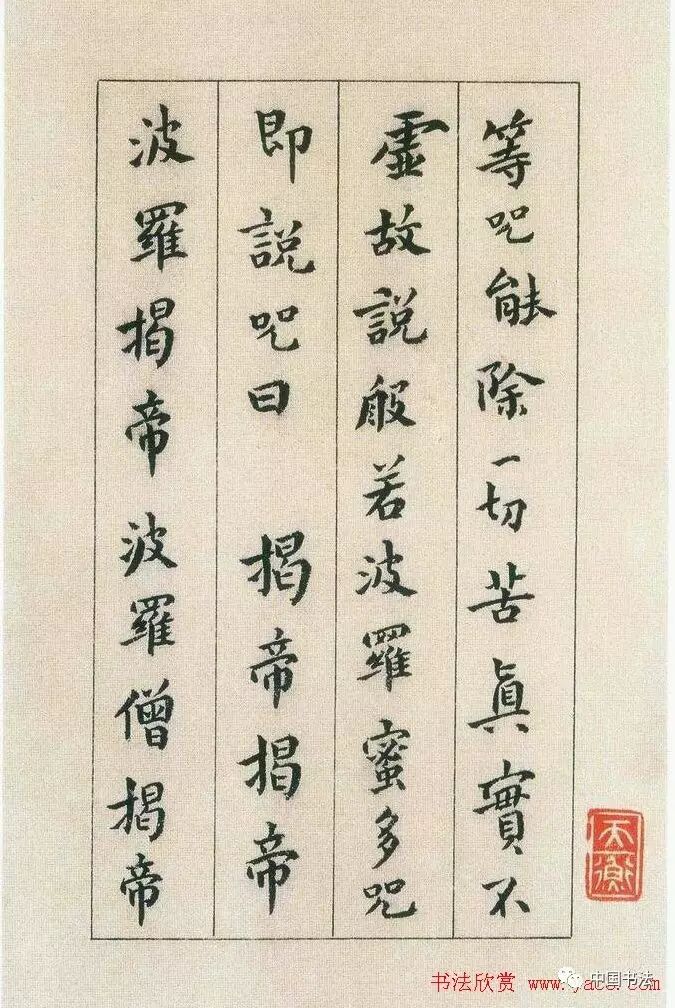 等咒能除一切苦真實不
虛故說般若波羅蜜多咒
即說咒曰 揭帝揭帝
波羅揭帝波羅僧揭帝
天衡
书法欣赏 www.yac8.com
中国书法